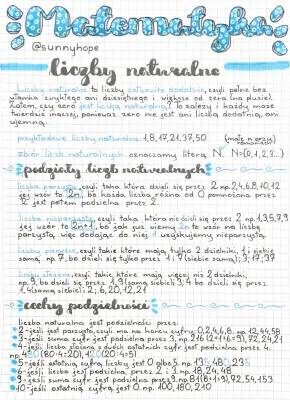 Matematyka
@sunnyhope
liczby naturalne
Liczby naturalne to liczby całkowite dodatnie, czyli pełne bez
ułamka zwykłego ani dziesiętnego i większe od zera (na plusie).
Zatem, czy zero jest liczbą naturalną? To zależy i każdy może
twierdzić inaczej, ponieważ zero nie jest ani liczbą dodatnią, ani
ujemną.
przykładowe liczby naturalne: 1,8,17,21,37,50
zbiór liczb naturalnych oznaczamy literą N. N={0,1,2,3...}
podzioły liczb naturalnych
liczba parzysta, czyli taka która dzieli się przez 2 np. 2,4,6,8,10,12
jej wzór to 2n, bo każda liczba różna od 0 pomnożona przez
2 jest potem podzielna przez 2.
liczba nieparzysta, czyli taka, która nie dzieli się przez 2 np. 1,3,5,7,9
jej wzór to 2n+1, bo jak już wiemy 2n to wzór na liczbę
parzystą, więc dodając do niej 1 uzyskujemy nieparzystą.
liczby pierwsze, czyli takie które mają tylko 2 dzielniki, 1 i siebie
samą, np. 7, bo dzieli się tylko przez 1 i 7 (siebie samą); 3,17,37
liczby złożone, czyli takie które mają więcej niż 2 dzielniki,
np. 9, bo dzieli się przez 1, 9 (samą siebie) i 3; 4 bo dzieli się przez
1,4 (samą siebie) i 2; 6, 20, 12, 21
cechy podzielności
liczba naturalna jest podzielna przez:
2-jeśli jest parzysta, czyli ma na końcu cyfrę: 0,2,4,6,8. np. 12,44,58
3-jeśli suma cyfr jest podzielna przez 3. np. 216 (2+1+6=9), 72, 24, 21
4-jeśli liczba złożona z dwóch ostatnich cyfr jest podzielna przez 4.
np. 480 (80:4=20), 120 (20:4=5)
5-jeśli ostatnią cyfrą liczby jest 0 albo 5. np. 135, 480, 235
6-jeśli liczba jest podzielna przez 2 i 3. np. 18, 24, 48
9-jeśli suma cyfr jest podzielna przez 9. np. 81 (8+1=9), 72, 54, 153
10-jeśli ostatnią cyfrą jest 0. np. 100, 180, 210